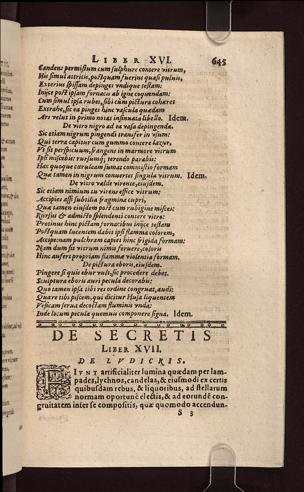 LIBER XVI. 645
Candens permistum cum sulphure contere vitrum,
His simul attritis, postquam fuerint quasi pulvis,
Exterius spissam depinges undique testam:
Iniice post ipsam fornacis ab igne coquendam:
Cum simul ipsa rubet, sibi cum pictura cohæret
Extrahe, sic ea pinges hinc vascula quædam
Ars velut in primo notat insinuata libello. Idem.
De vitro nigro ad ea vasa depingenda.
Sic etiam nigrum pingendi transfer in usum:
Qui terra capitur cum gummo contere lazur,
Et sit perspicuum, frangens in marmore vitrum
Ipsi miscebis: rursumque terendo parabis:
Hæc quoque cæruleam sumat commistio formam
Quæ tamen in nigrum convertet singula vitrum. Idem.
De vitro valde virente, eiusdem.
Sic etiam nimium tu virens effice vitrum;
Accipies assi subtilia fragmina cupri,
Quæ tamen eiusdem post cum rubigine misces:
Rursus & admicto splendenti contere vitro:
Protinus hinc pictam fornacibus iniice testam
Postquam lucentem dabit ipsi flamma colorem,
Accipe nam pulchram capiet hinc frigida formam:
Nam dum sit vitrum nimis fervere, colore
Hinc aufert propriam flamma violentia formam.
De pictura eboris, eiusdem.
Pingere si quis ebur vult, sic procedere debet.
Sculptura eboris auri pecula decorabis;
Quo tamen ipsa tibi res ordine congruat, audi:
Quære tibi piscem, qui dicitur Husa liquentem
Vesicam serva decoctam fluminis unda:
Inde locum pecula quemvis componere signa. Idem.
DE SECRETIS
LIBER XVII.
DE LVDICRIS.
FIUNT artificialiter lumina quædam per lam-
pades, lychnos, candelas, & eiusmodi ex certis
quibusdam rebus, & liquoribus, ad stellarum
normam oportunè electis, & ad eorundē con-
gruitatem inter se compositis, quæ quomodo accendun-
S 3